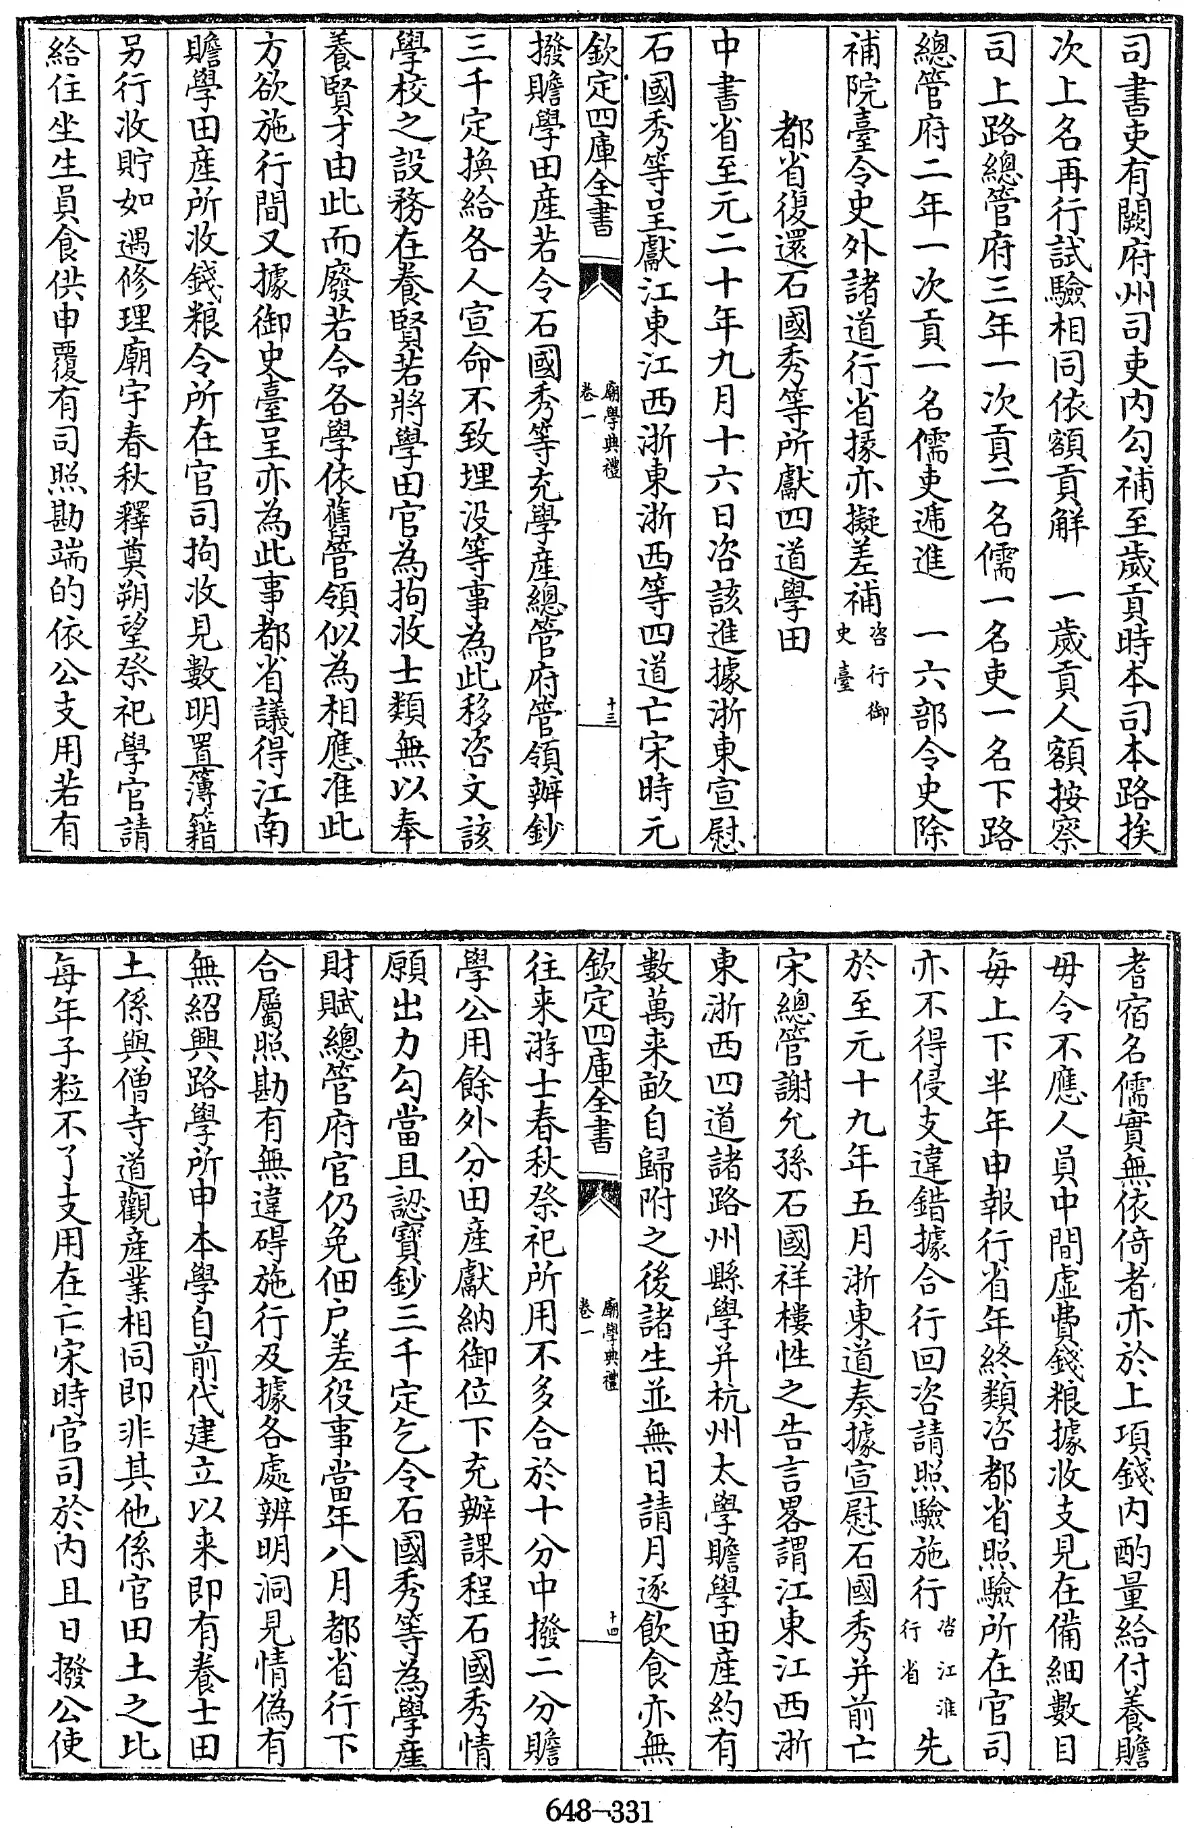 司書吏有闕府州司吏内勾補至歲貢時本司本路挨
次上名再行試驗相同依額貢解　一歲貢人額按察
司上路總管府三年一次貢二名儒一名吏一名下路
總管府二年一次貢一名儒吏逓進　一六部令史除
補院臺令史外諸道行省掾亦擬差補咨行御史臺
都省復還石國秀等所獻四道學田
中書省至元二十年九月十六日咨該進據浙東宣慰
石國秀等呈獻江東江西浙東浙西等四道亡宋時元
欽定四庫全書
廟學典禮
卷一
十三
撥贍學田産若令石國秀等充學産總管府管領辦鈔
三千定換給各人宣命不致埋没等事為此移咨文該
學校之設務在養賢若將學田官為拘收士類無以奉
養賢才由此而廢若令各學依舊管領似為相應准此
方欲施行間又據御史臺呈亦為此事都省議得江南
贍學田産所收錢粮令所在官司拘收見數明置簿籍
另行收貯如遇修理廟宇春秋釋奠朔望祭祀學官請
給住坐生員食供申覆有司照勘端的依公支用若有
耆宿名儒實無依倚者亦於上項錢内酌量給付養贍
毋令不應人員中間虚費錢粮據收支見在備細數目
每上下半年申報行省年終類咨都省照驗所在官司
亦不得侵支違錯據合行回咨請照驗施行咨江淮行省先
於至元十九年五月浙東道奏據宣慰石國秀并前亡
宋總管謝允孫石國祥樓性之告言畧謂江東江西浙
東浙西四道諸路州縣學并杭州太學贍學田産約有
數萬来畝自歸附之後諸生並無日請月逐飲食亦無
欽定四庫全書
廟學典禮
卷一
十四
往来游士春秋祭祀所用不多合於十分中撥二分贍
學公用餘外分田産獻納御位下充辦課程石國秀情
願出力勾當且認寶鈔三千定乞令石國秀等為學産
財賦總管府官仍免佃户差役事當年八月都省行下
合屬照勘有無違碍施行及據各處辨明洞見情偽有
無紹興路學所申本學自前代建立以来即有養士田
土係與僧寺道觀産業相同即非其他係官田土之比
每年子粒不了支用在亡宋時官司於内且日撥公使
648-331